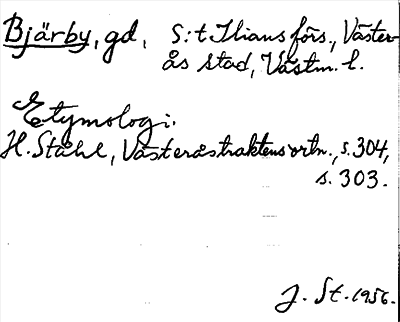 Bjärby, gd, S:t Ilians förs., Väster-
ås stad, Västm. l.
Etymologi:
H. Ståhl, Västeråstraktens ortn., s. 304,
s. 303.
J. St. 1956.